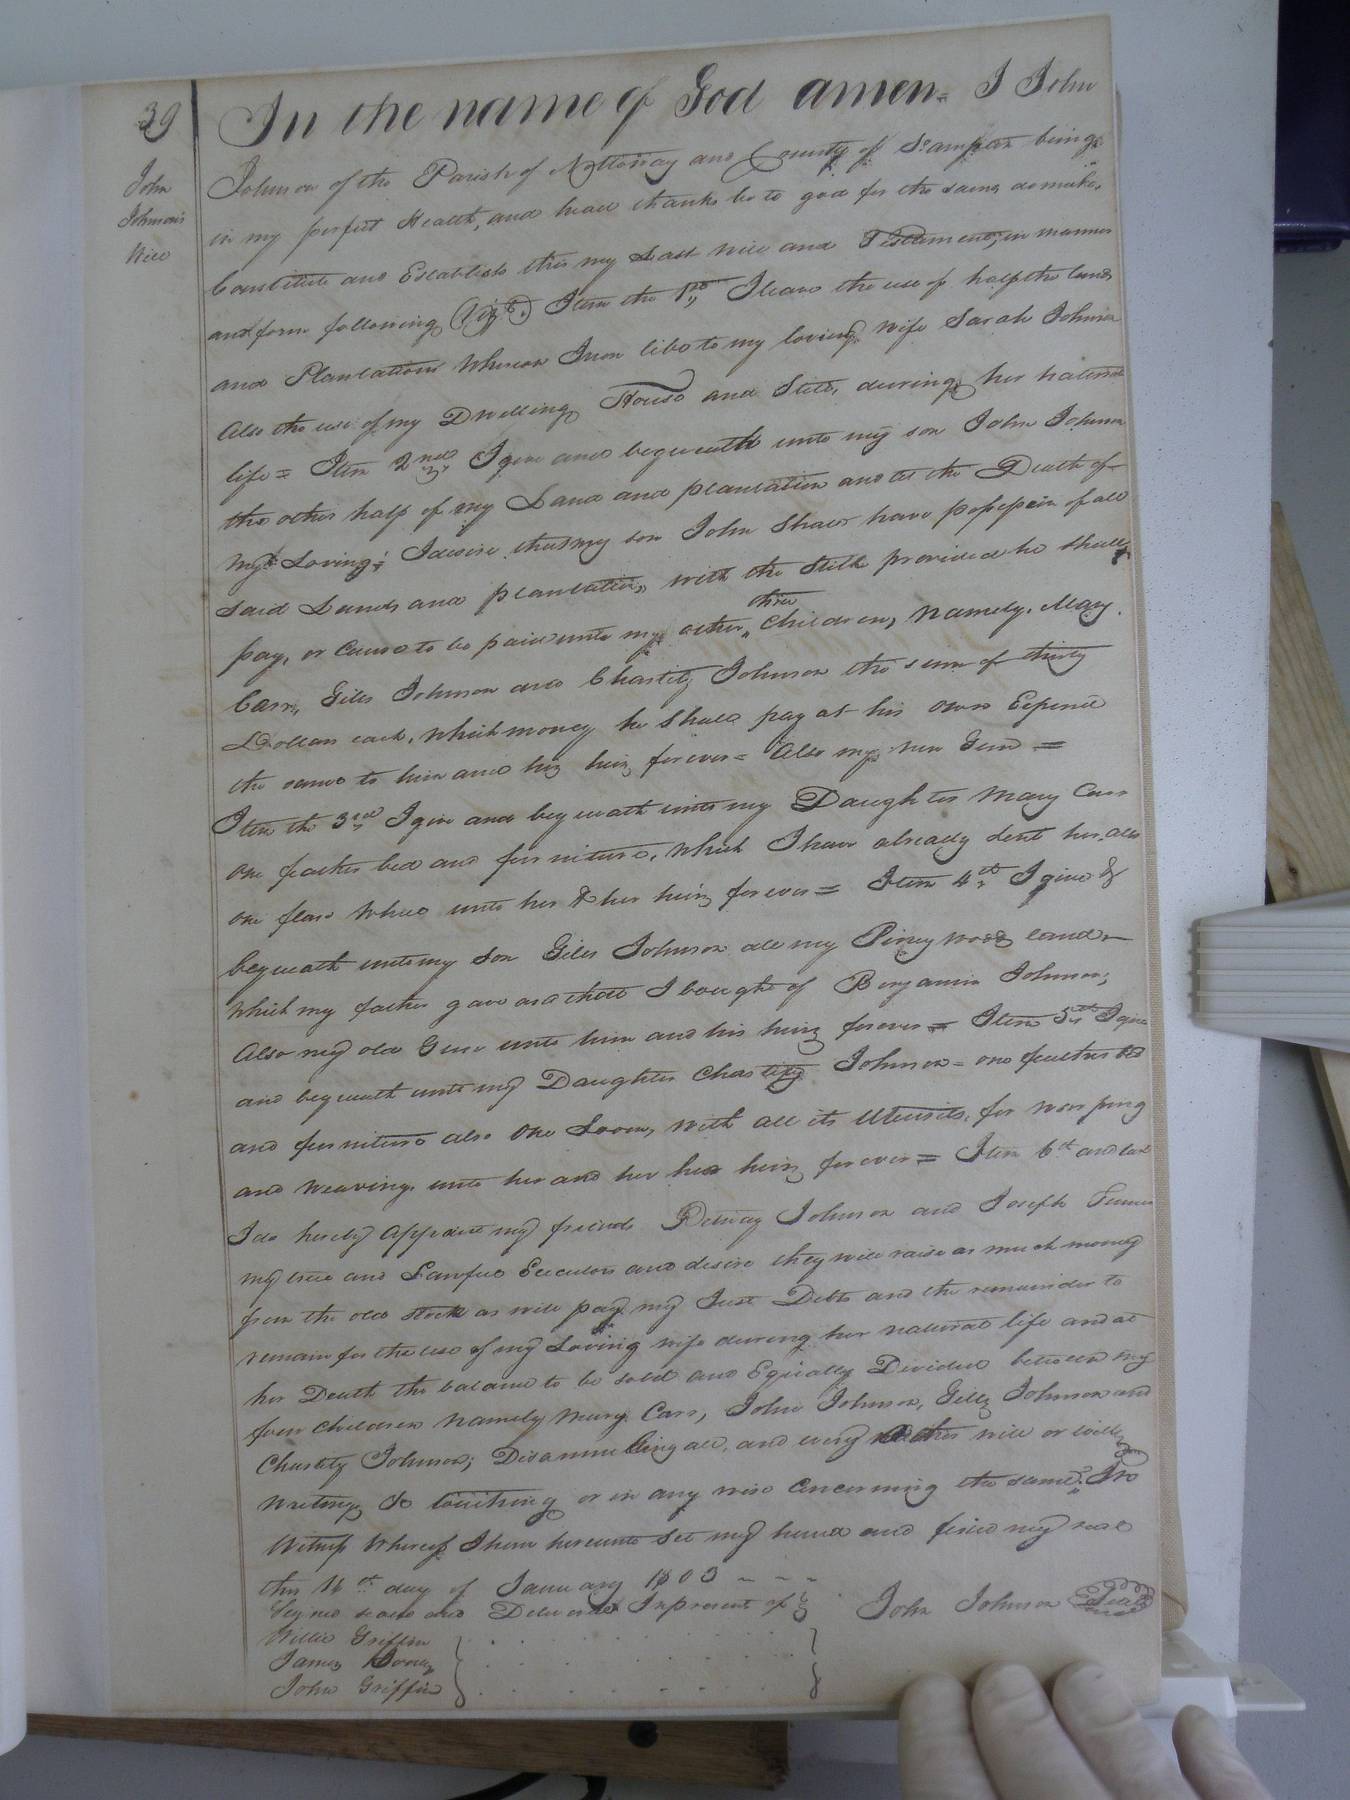 39
John
Johnson's
Will
In the name of God amen = I John
Johnson of the Parish of Nottoway and County of S:ampton being
in my perfect Health, and head thanks be to god for the same, do make,
Constitute and Establish this my Last will and Testament, in manner
and form following (Vizt.) Item the 1st I leave the use of half the land
and Plantation Whereon I now libe to my loving wife Sarah Johnson
Also the use of my Dwelling House and Still, during her natural
life = Item 2nd I give and bequeath unto my son John Johnson
the other half of my Land and plantation and at the Death of
my Loving; I desire that my son John Shall have possession of all
said Lands and plantation, with the Still provided he shall
pay, or Cause to be paid unto my other three Children, Namely, Mary
Carr, Giles Johnson and Chastity Johnson the sum of thirty
Dollars each, which money he Shall pay at his own Expence
the same to him and his heirs forever = Also my new Gun =
Item the 3rd I give and bequeath unto my Daughter Mary Carr
one feather bed and furniture, which I have already lent her, also
one flax Wheel unto her & her heirs forever = Item 4th I give &
bequeath unto my Son Giles Johnson all my Piney woods land
which my father gave and that I bought of Benjamin Johnson;
Also my old Gun unto him and his heirs forever = Item 5th I give
and bequeath unto my Daughter Chastity Johnson = one feather bed
and furniture also One Loom, with all its Utensils, for warping
and weaving, unto her and her heirs forever = Item 6th and last
I do hereby Appoint my friends Johnson and Joseph
my true and Lawful Executors and desire they will raise as much money
from the old stock as will pay my Just Debts and the remainder to
remain for the use of my Loving wife during her natural life and at
her Death the balance to be sold and Equally Divided between my
four children Namely Mary Carr, John Johnson, Giles Johnson and
Chastity Johnson; Disannulling all, and every other will or wills
Writings touching or in any wise Concerning the same. In
Witness Whereof I have hereunto Set my hand and fixed my seal
this 16th day of January 1803 ~ ~ ~
Signed seald and Deliverd In present of John Johnson Seal
Willie Griffin
James
John Griffin